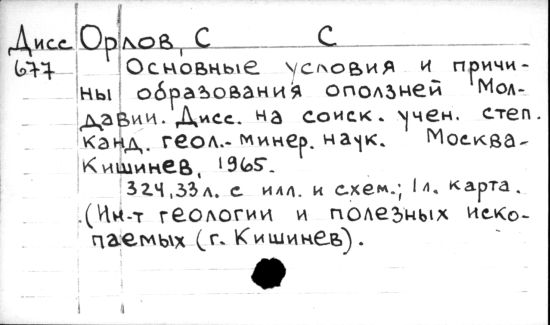 Дисс Орлов, С С
677 Основные условия и причи-
ны образования оползней Мол-
давии. Дисс. на соиск. учен. степ.
канд. геол.-минер. наук. Москва-
Кишинев, 1965.
324,33л. с илл. и схем.; 1л. карта.
(Ин-т геологии и полезных иско-
паемых (г. Кишинев).